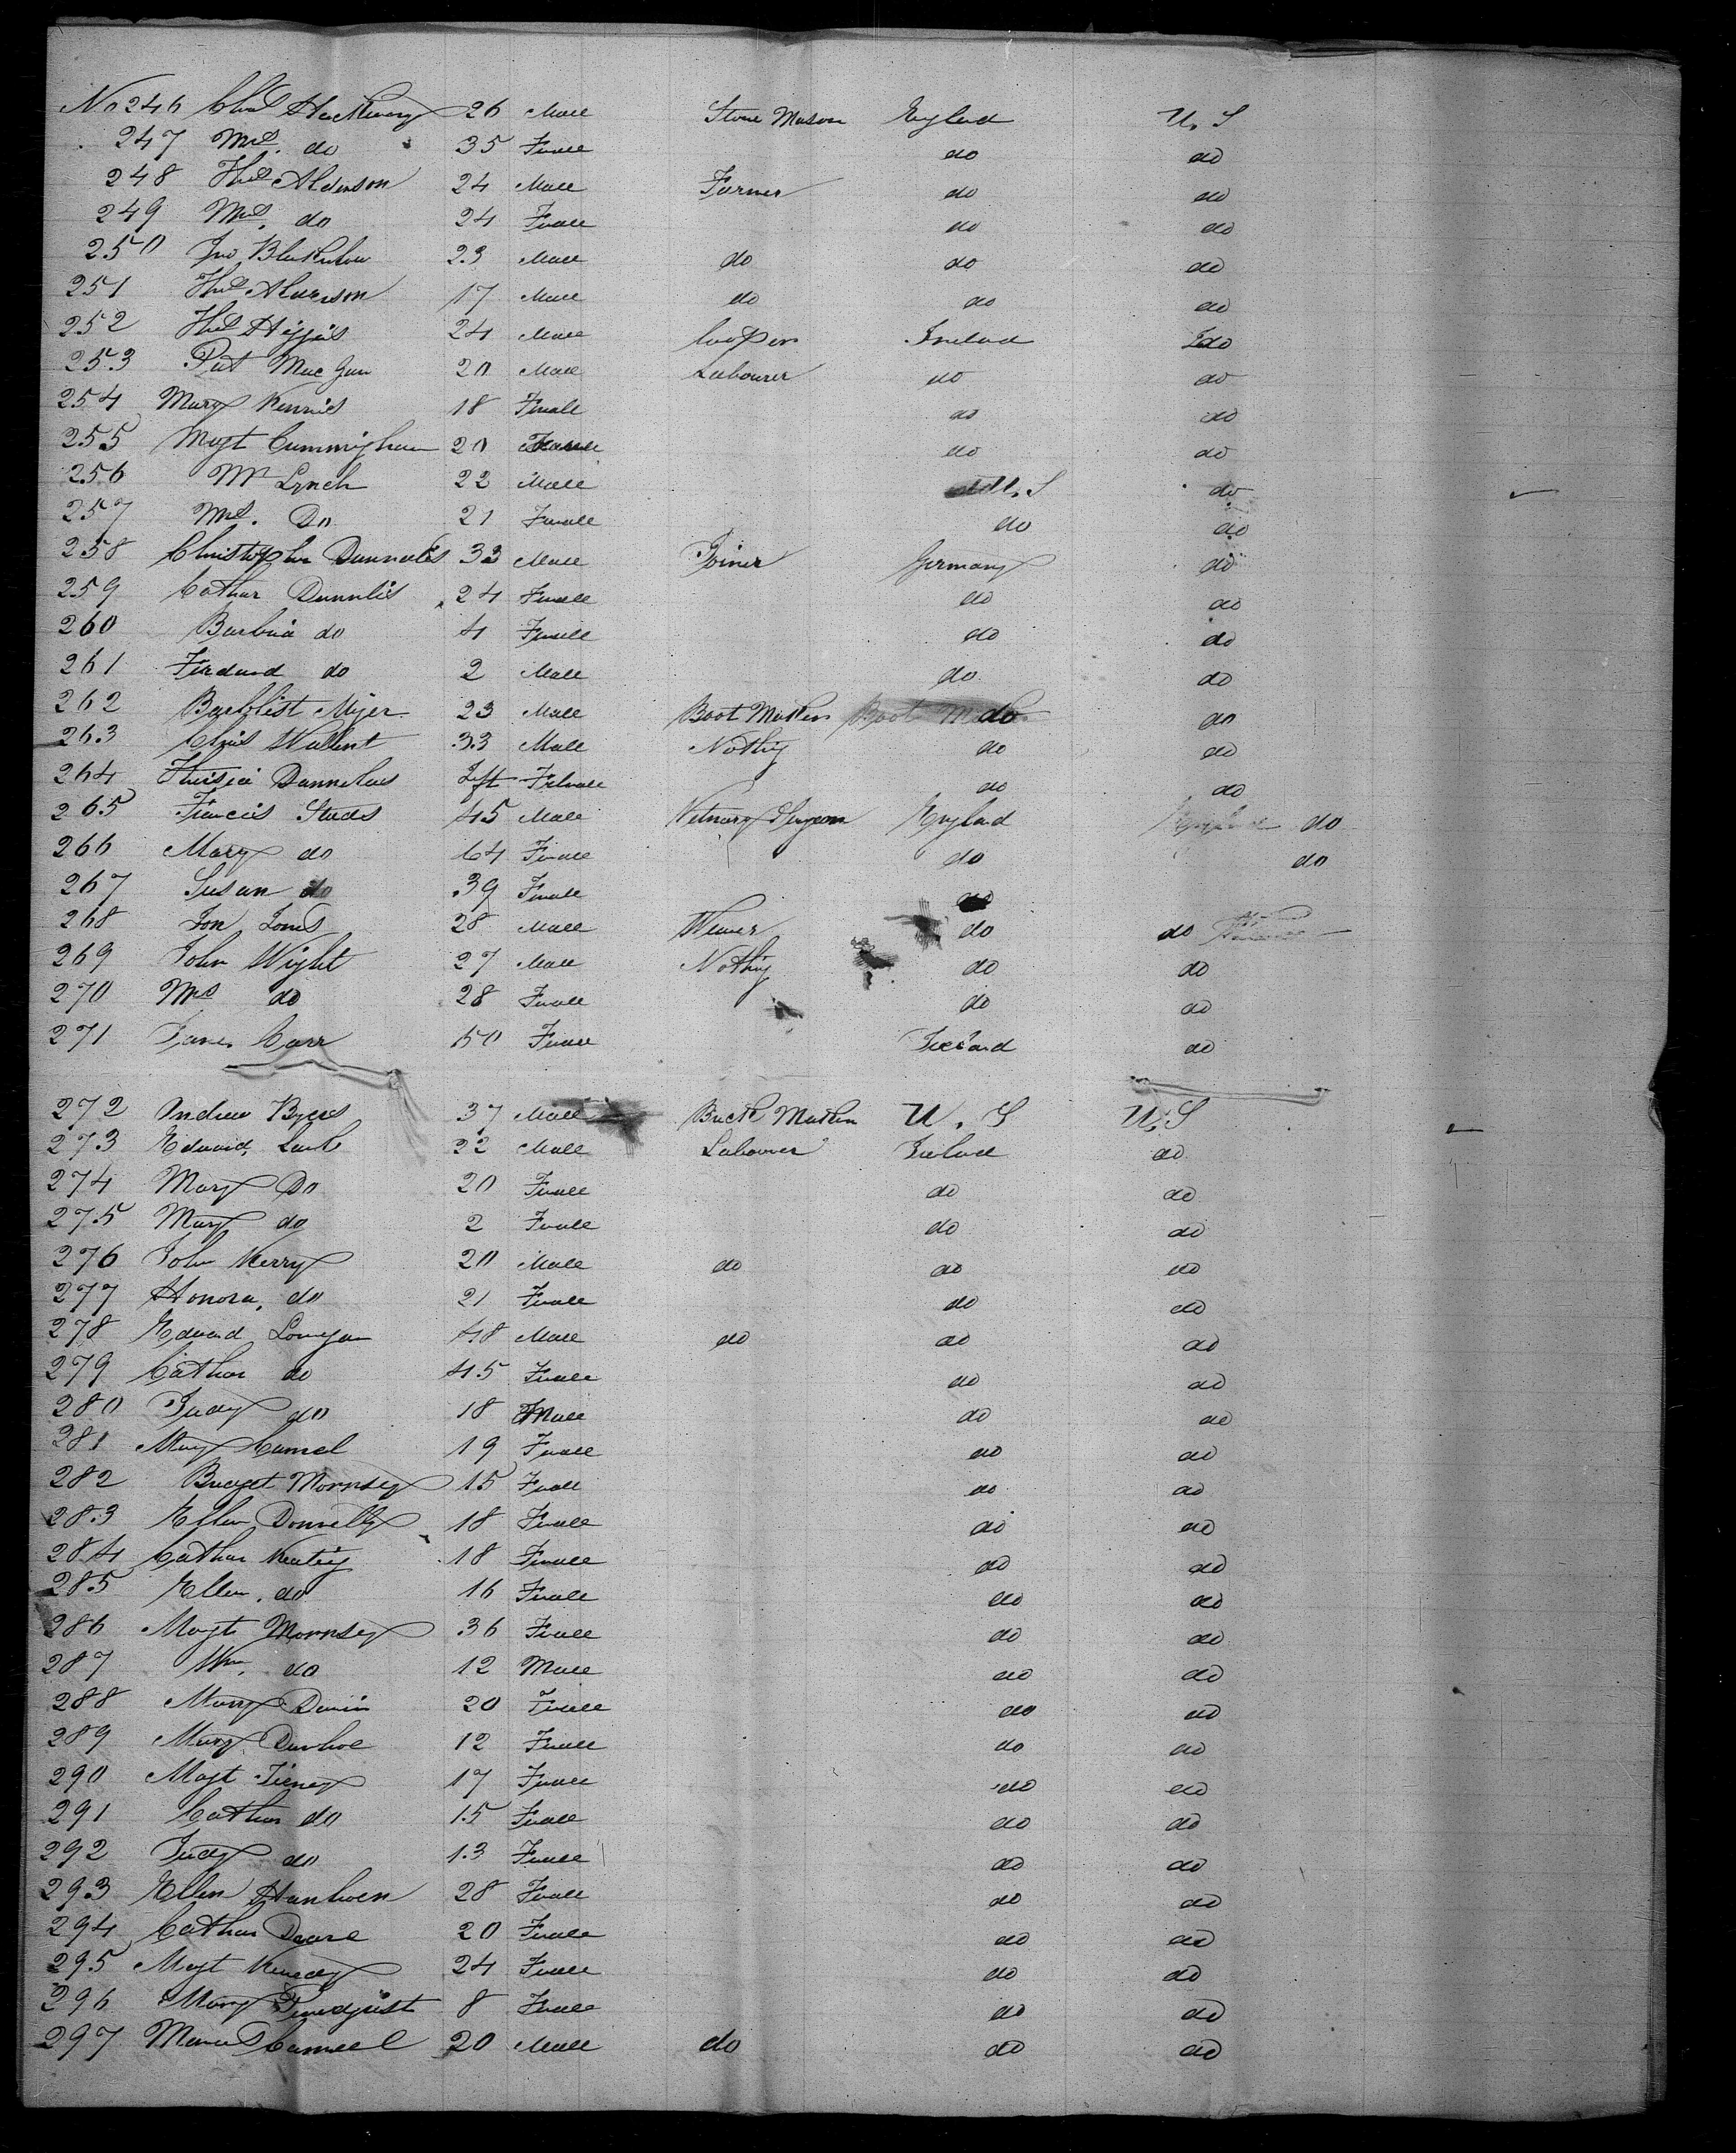 No 246 Chas 26 Male Stone Mason England U. S
247 Mrs. do 35 Female do do
248 Thos Alderson 24 Male Farmer do do
249 Mrs. do 24 Female do do
250 Jno 23 Male do do do
251 Thos Alderson 17 Male do do do
252 Thos Higgins 24 Male Cooper Ireland do
253 Pat Mac Gau 20 Male Labourer do do
254 Mary 18 Female do do
255 Magt Cunningham 20 Female do do
256 Mr Lynch 22 Male U. S do
257 Mrs. Do 21 Female do do
258 Christopher 33 Male Joiner Germany do
259 Cathar 24 Female do do
260 Barbria do 4 Female do do
261 Ferdund do 2 Male do do
262 Myer 23 Male Boot Maker do do
263 Chris 33 Male Nothig do do
264 Inft Female do do
265 Francis Studs 45 Male Vetnary Surgeon England do
266 Mary do 64 Female do do
267 Susan do 39 Female do
268 Jon Jones 28 Male Weaver do do
269 John Wight 27 Male Nothig do do
270 Mrs do 28 Female do do
271 Carr 50 Female Ireland do
272 Andrew Byres 37 Male U. S U. S
273 Edward 22 Male Labourer Ireland do
274 Mary Do 20 Female do do
275 Mary do 2 Female do do
276 John Kerry 20 Male do do do
277 Honora. do 21 Female do do
278 Edward 48 Male do do do
279 Cathar do 45 Female do do
280 Judy do 18 do do
281 Mary 19 Female do do
282 Bridget Mornsey 15 Female do do
283 Ellen Donnelly 18 Female do do
284 Cathar Keatig 18 Female do do
285 Ellen. do 16 Female do do
286 Magt Mornsey 36 Female do do
287 Wm. do 12 Male do do
288 Mary 20 Female do do
289 Mary 12 Female do do
290 Magt Tierney 17 Female do do
291 Cathar do 15 Female do do
292 Judy do 13 Female do do
293 Ellen 28 Female do do
294 Cathar 20 Female do do
295 Magt Kenedy 24 Female do do
296 Mary 8 Female do do
297 20 Male do do do